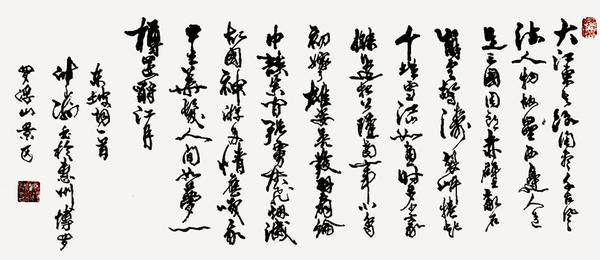 大江東去浪淘尽千古風
流人物故壘西邊人道
是三國周郎赤壁亂石
崩雲驚濤裂岸捲起
千堆雪江山如畫一時多少豪
傑遥想公瑾當年小喬
初嫁雄姿英發羽扇綸
巾談笑間强虜灰飛烟滅
故國神游多情應笑我
早生華髮人間如夢一
樽還酹江月
东坡词一首
書於惠州博罗
罗浮山景区